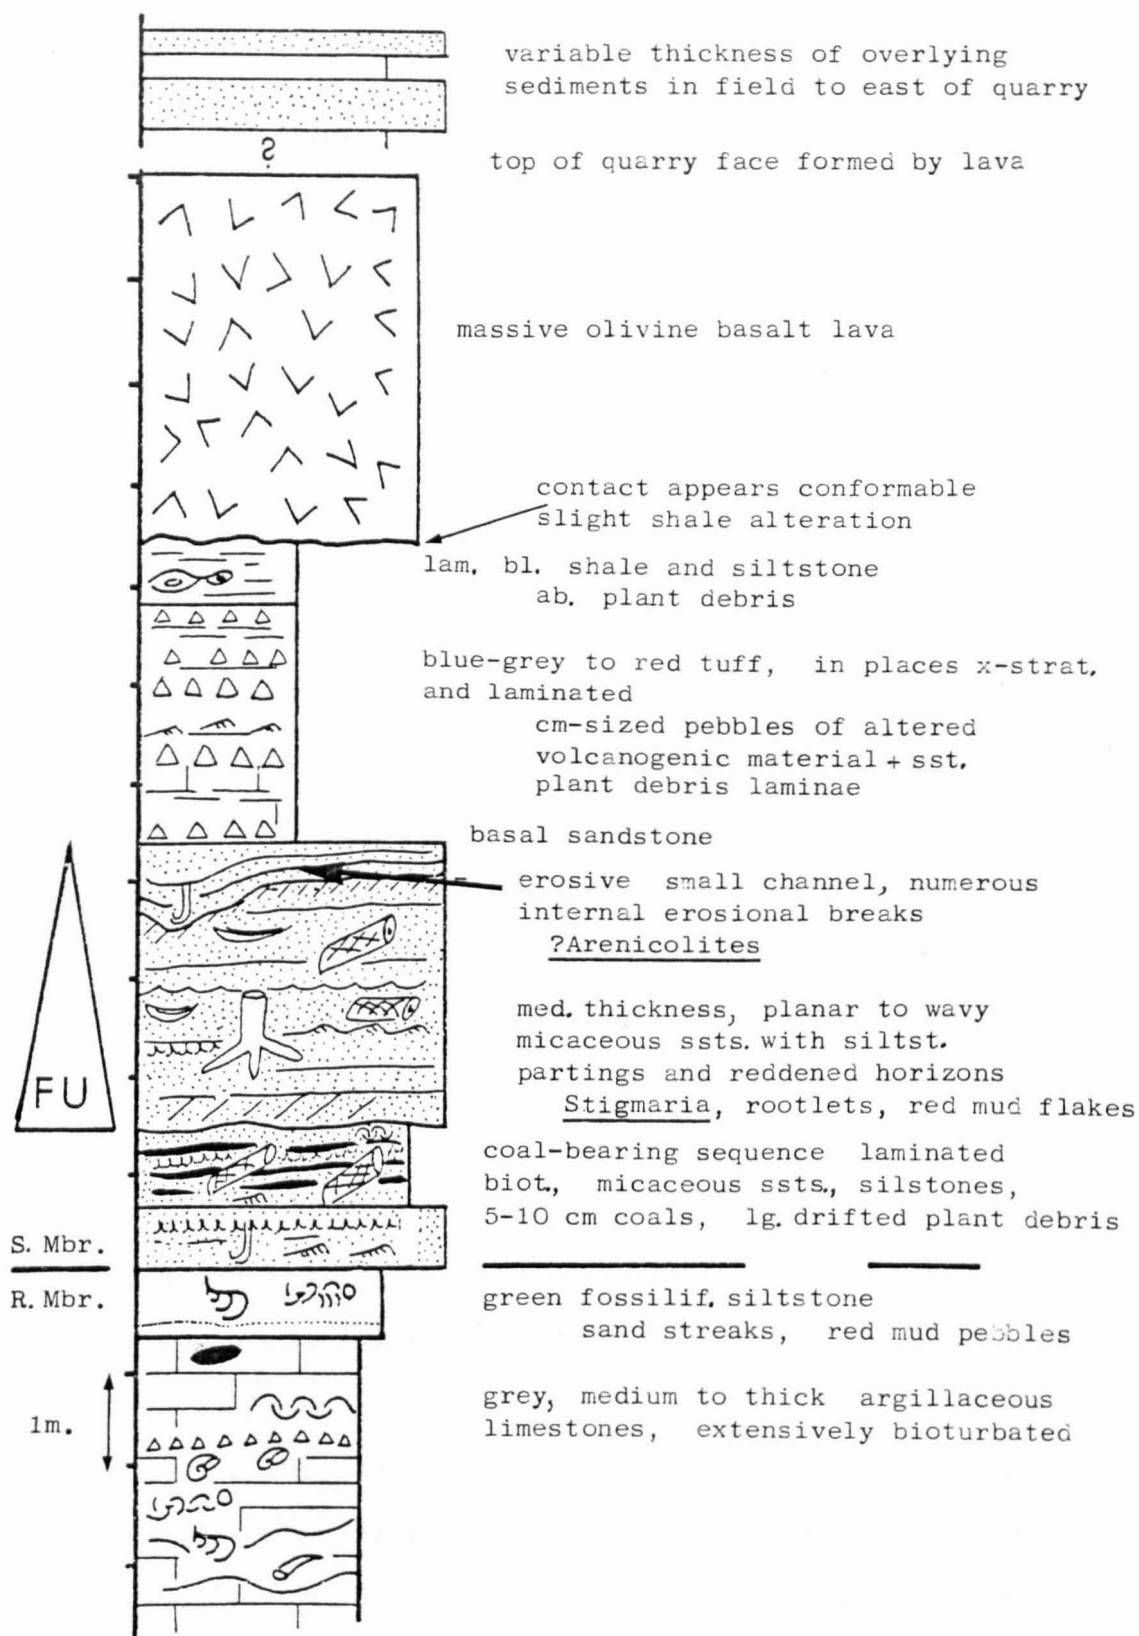 variable thickness of overlying
sediments in field to east of quarry
?
top of quarry face formed by lava
massive olivine basalt lava
contact appears conformable
slight shale alteration
lam. bl. shale and siltstone
ab. plant debris
blue-grey to red tuff, in places x-strat.
and laminated
cm-sized pebbles of altered
volcanogenic material + sst.
plant debris laminae
basal sandstone
erosive small channel, numerous
internal erosional breaks
?Arenicolites
med. thickness, planar to wavy
micaceous ssts. with siltst.
partings and reddened horizons
Stigmaria, rootlets, red mud flakes
FU
coal-bearing sequence laminated
biot., micaceous ssts., silstones,
5-10 cm coals, lg. drifted plant debris
S. Mbr.
R. Mbr.
green fossilif. siltstone
sand streaks, red mud pebbles
1m.
grey, medium to thick argillaceous
limestones, extensively bioturbated